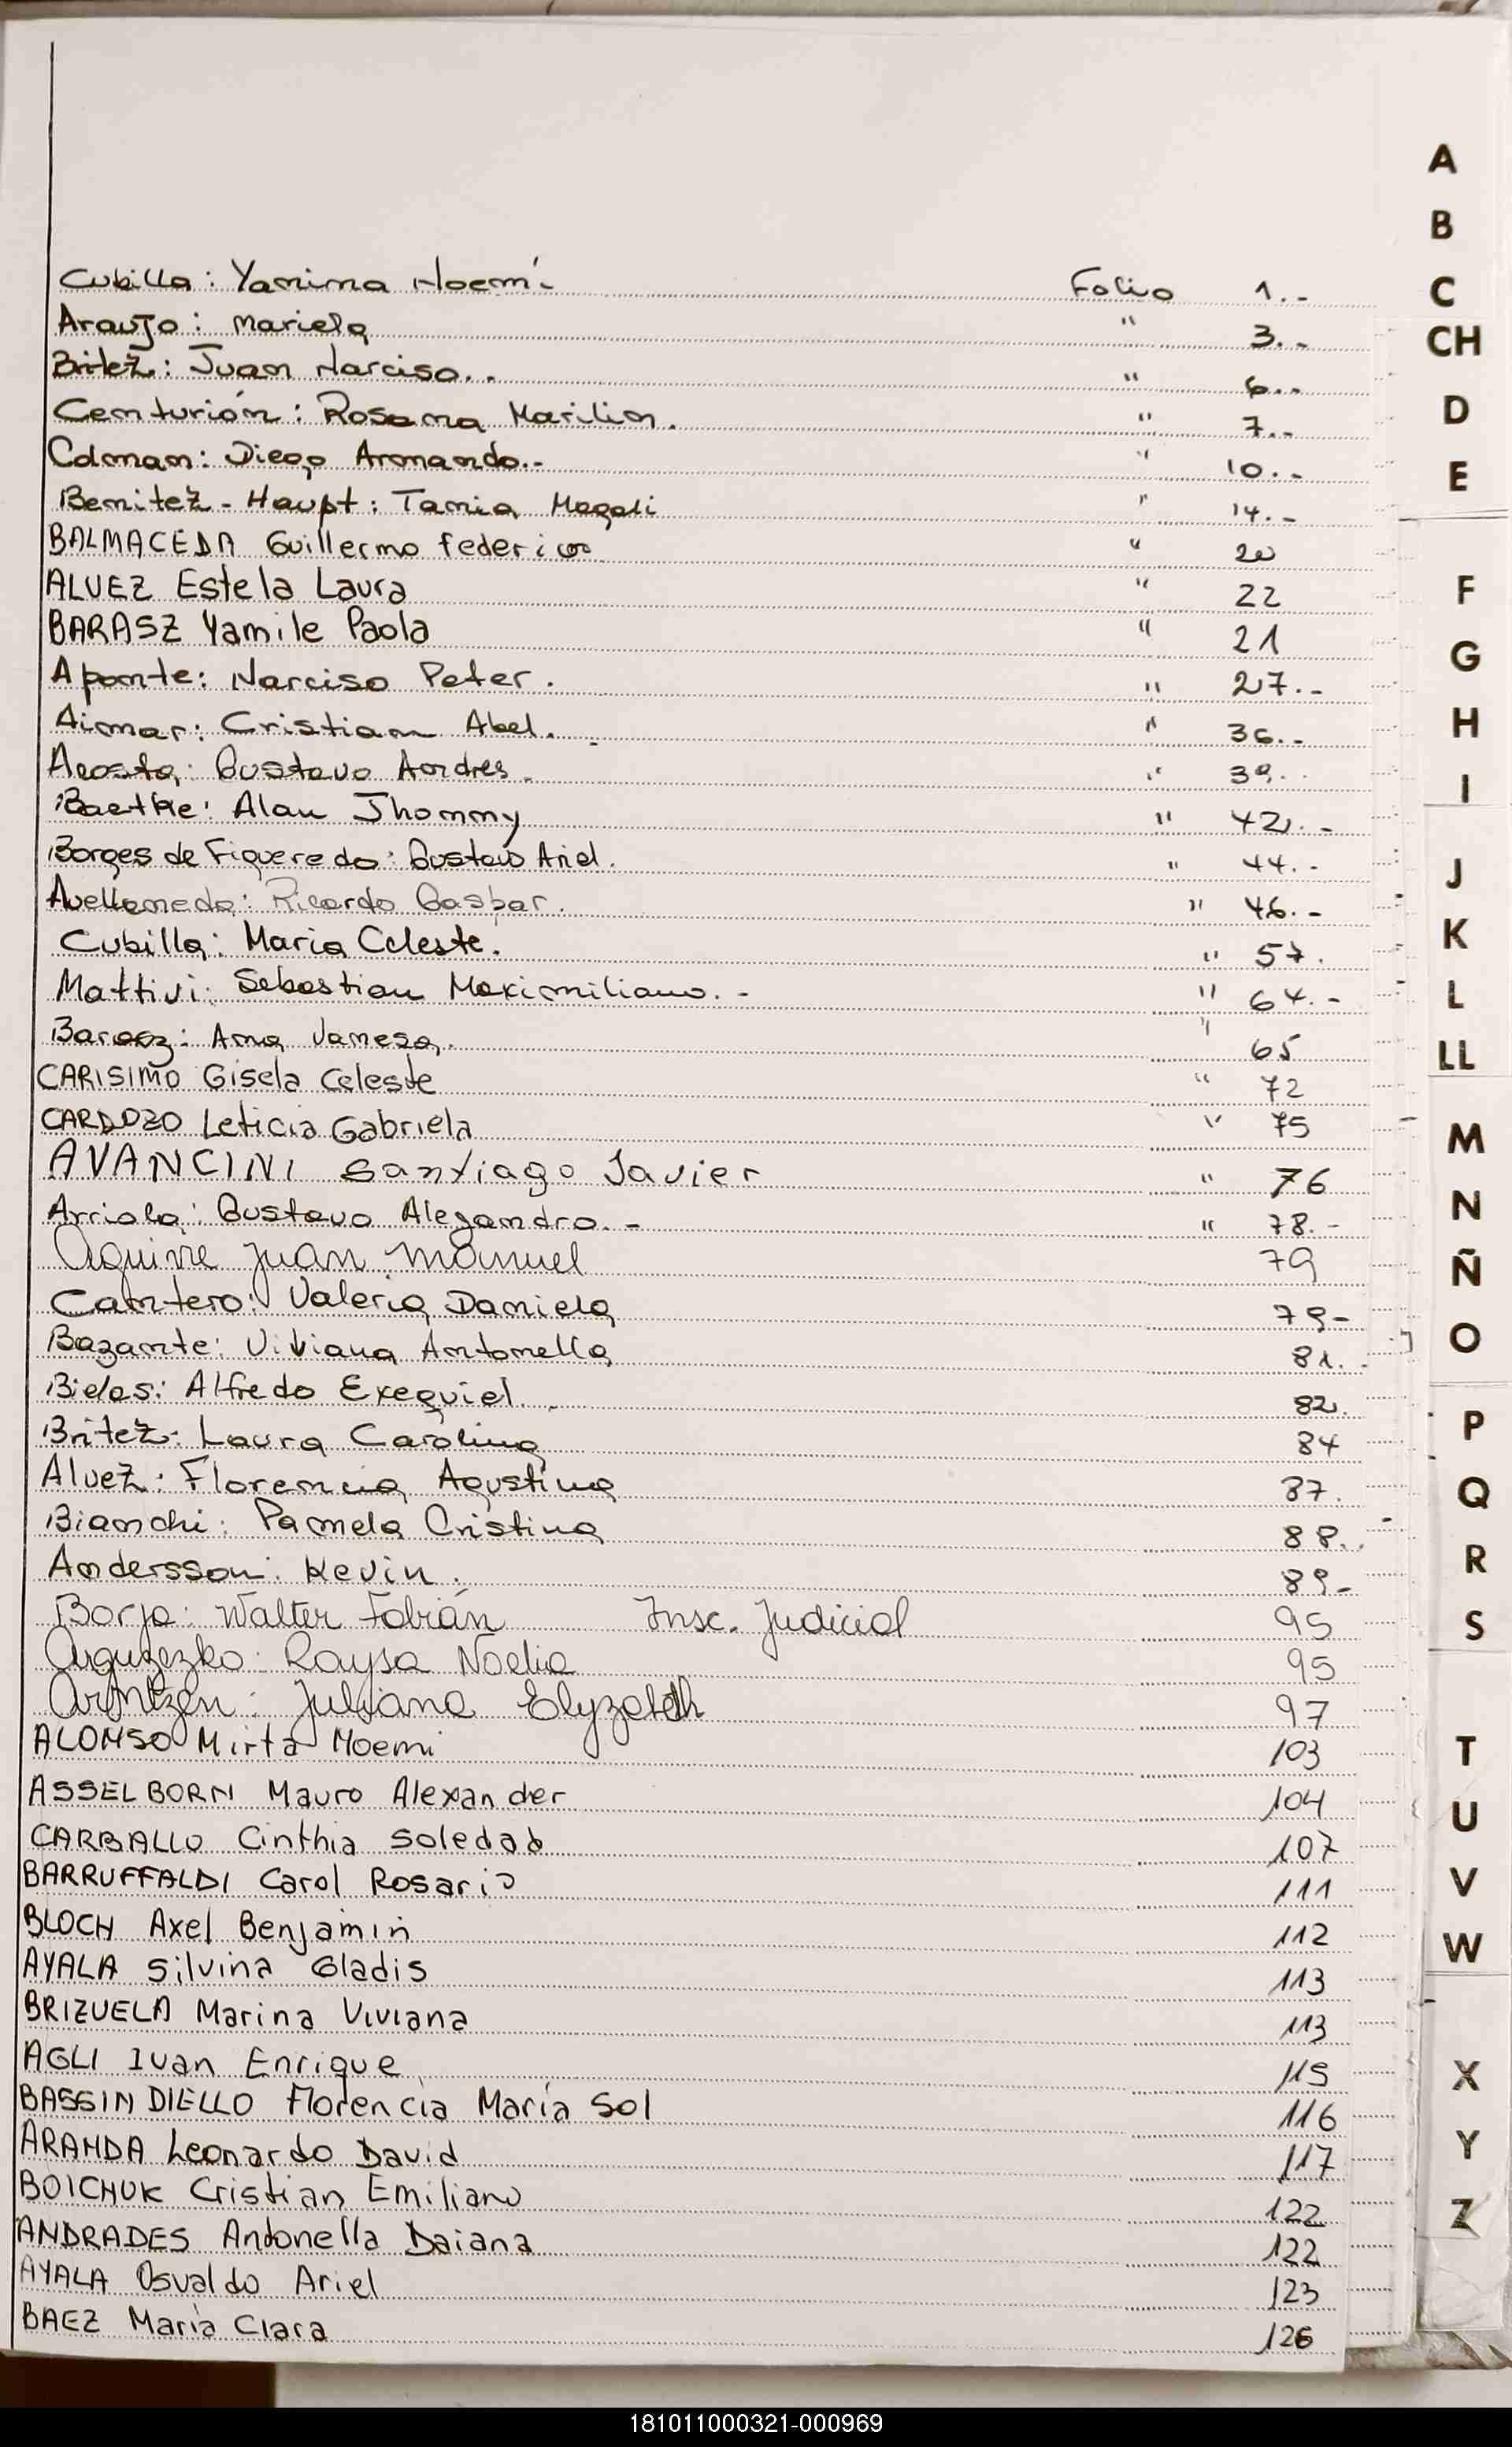 Cubilla: Yanina Noemí.- Folio 1.-
Araujo: Mariela " 3.-
Britez: Juan Narciso.. " 6.-
Centurión: Rosana Marilin. " 7.-
Colman: Diego Armando.- " 10.-
Benitez - Haupt: Tania Magali " 14.-
BALMACEDA Guillermo Federico " 20
ALVEZ Estela Laura " 22
BARASZ Yamile Paola " 21
Aponte: Narciso Peter. " 27.-
Aimar: Cristian Abel. " 36.-
Acosta: Gustavo Andres. " 39.
Baethke: Alan Jhommy " 42.-
Borges de Figueredo: Gustavo Ariel. " 44.-
Avellaneda: Ricardo Gaspar. " 46.-
Cubilla: Maria Celeste. " 57.
Mattivi: Sebastian Maximiliano.- " 64.-
Ana Vanesa. " 65
CARISIMO Gisela Celeste " 72
CARDOZO Leticia Gabriela " 75
AVANCINI Santiago Javier " 76
Arriola: Gustavo Alejandro.- " 78.-
Aguirre Juan Manuel 79
Cantero: Valeria Daniela 79-
Bazante: Viviana Antonella 81.-
Bielas: Alfredo Exequiel. 82.
Britez: Laura Carolina 84
Alvez: Florencia Agustina 87.
Bianchi: Pamela Cristina 88.
Andersson: Kevin. 89-
Borja: Walter Fabián Insc. Judicial 95
Raysa Noelia 95
Arntzen: Juliana Elyzabeth 97
ALONSO Mirta Noemi 103
ASSELBORN Mauro Alexander 104
CARBALLO Cinthia Soledad 107
BARRUFFALDI Carol Rosario 111
BLOCH Axel Benjamin 112
AYALA Silvina Gladis 113
BRIZUELA Marina Viviana 113
AGLI Ivan Enrique 115
BASSINDIELLO Florencia María Sol 116
ARANDA Leonardo David 117
BOICHUK Cristian Emiliano 122
ANDRADES Antonella Daiana 122
AYALA Osvaldo Ariel 123
BAEZ María Clara 126
A
B
C
CH
D
E
F
G
H
I
J
K
L
LL
M
N
Ñ
O
P
Q
R
S
T
U
V
W
X
Y
Z
181011000321-000969